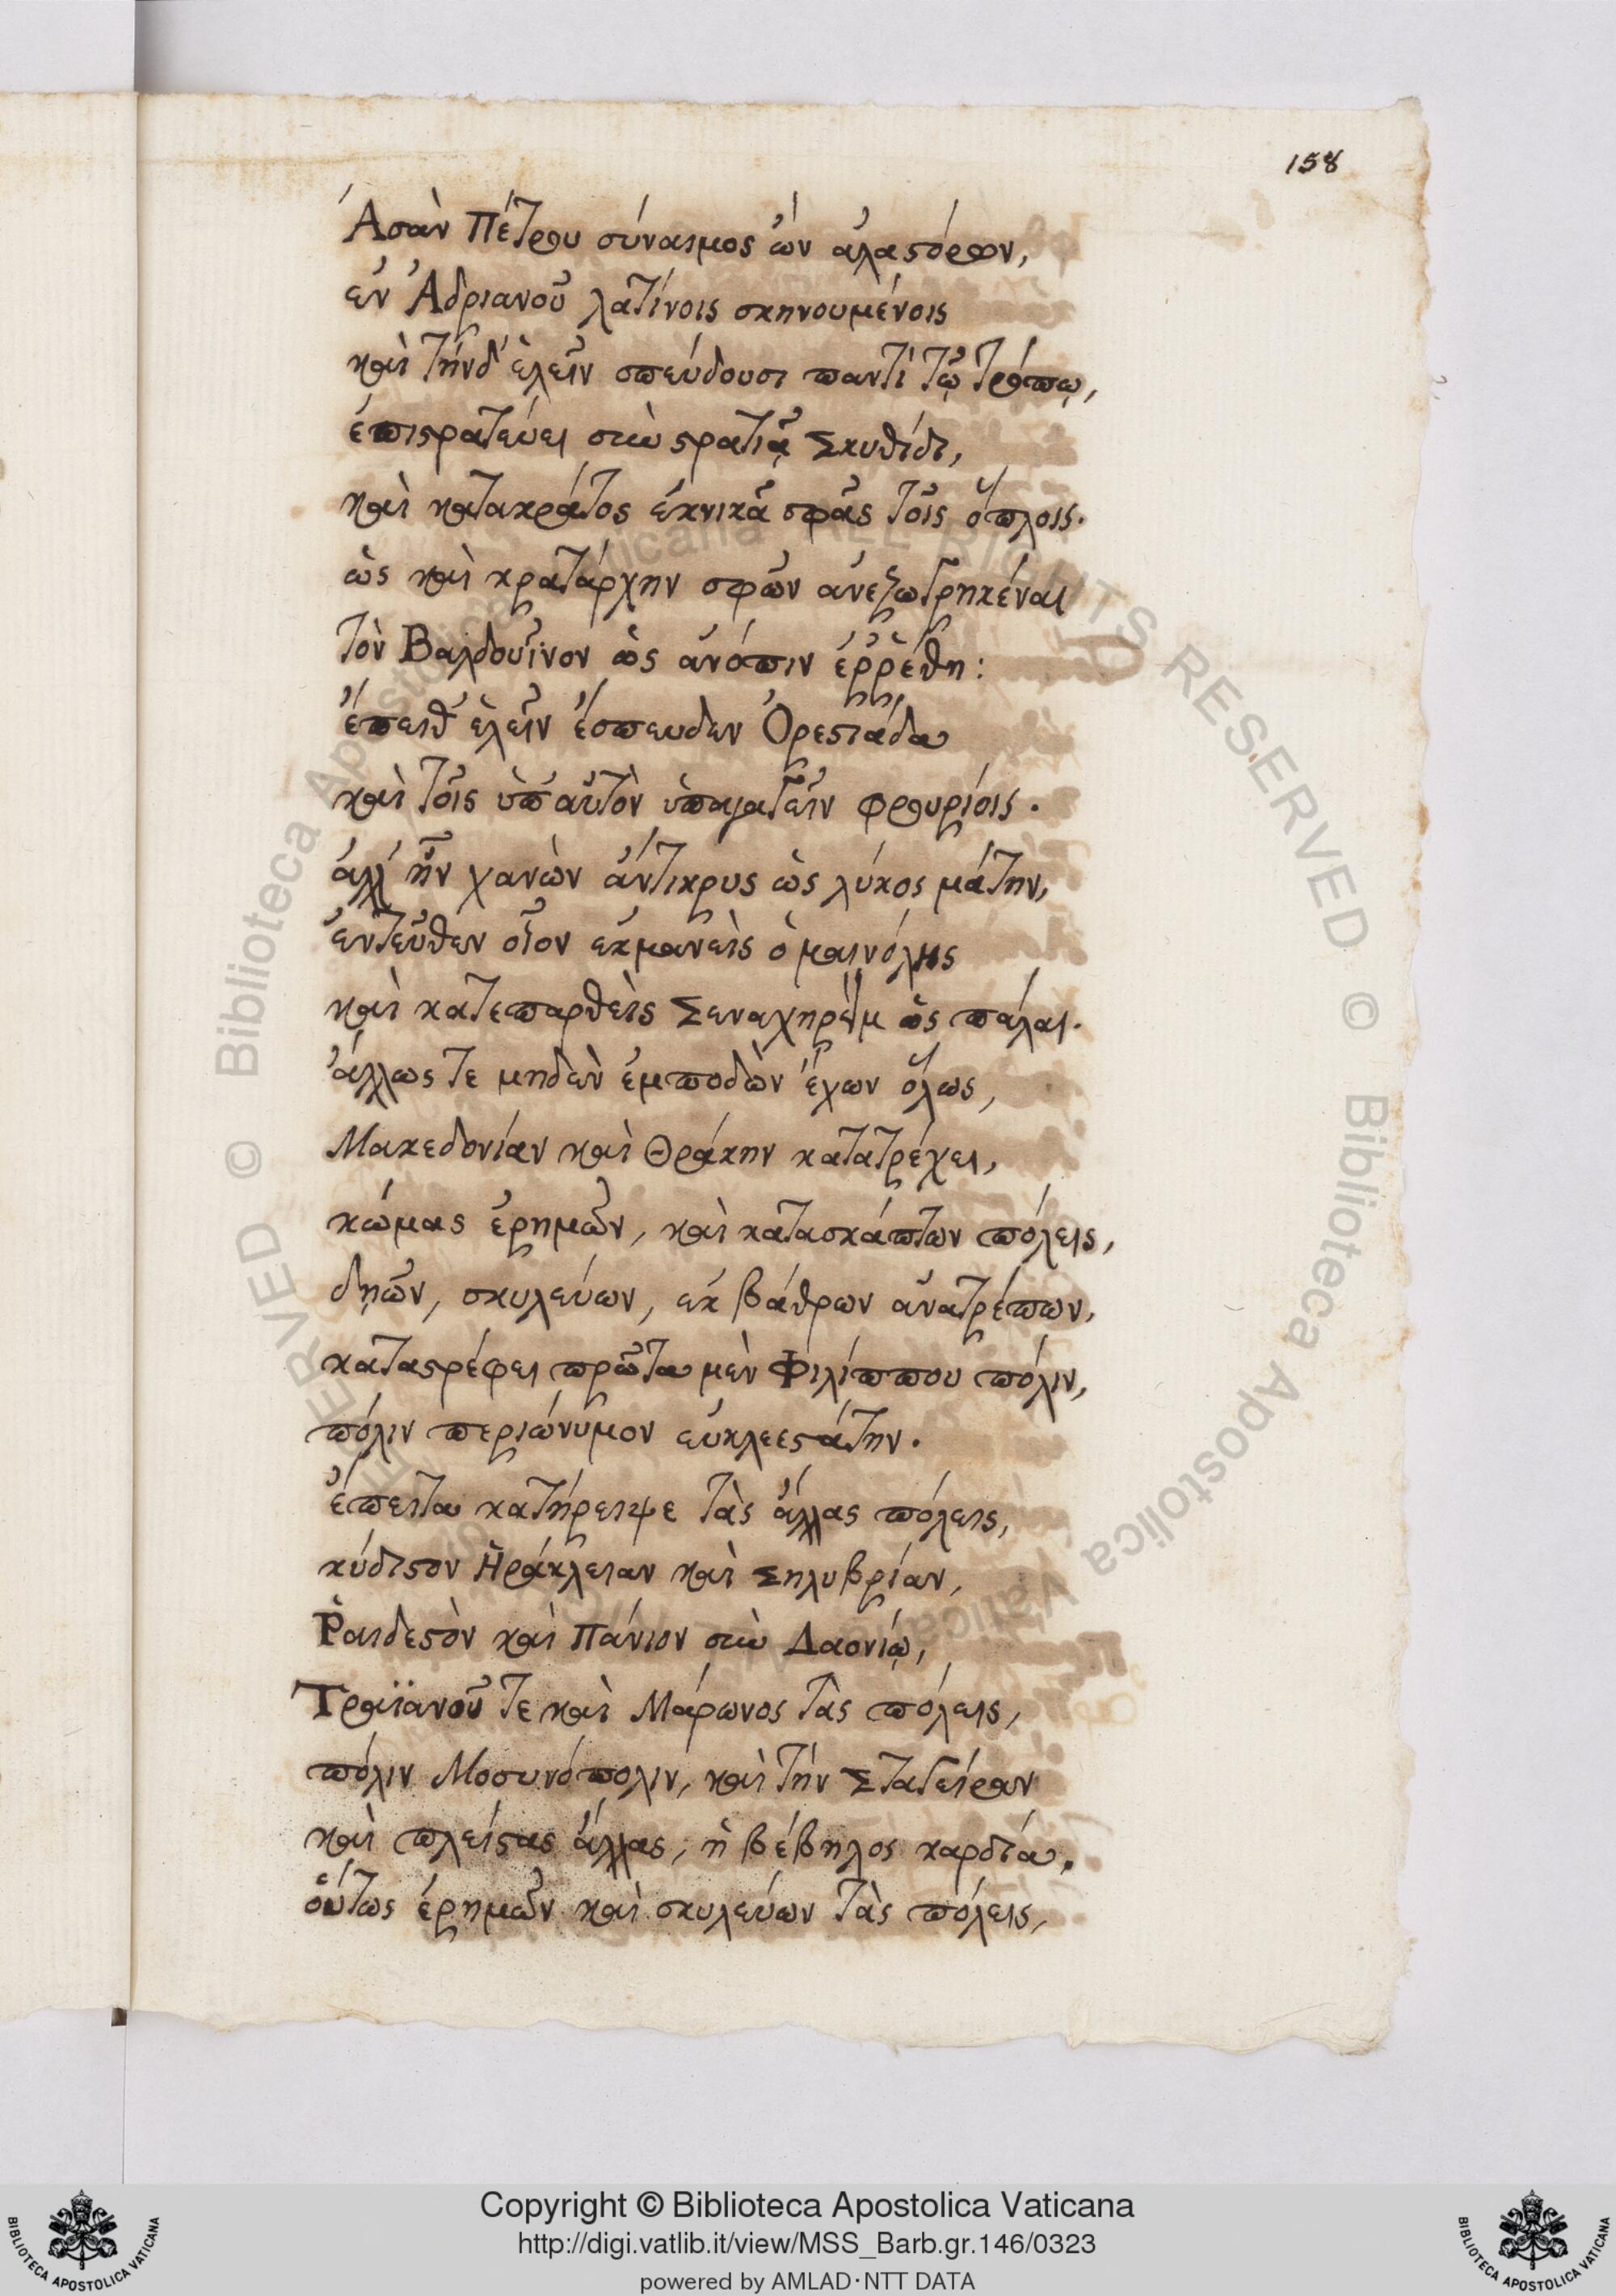 158
Ἀσὰν Πέτρου σύναιμος ὢν ἀλαστόρων,
ἐν Ἀδριανοῦ λατίνοις σκηνουμένοις
καὶ τήνδ' ἑλεῖν σπεύδουσι παντὶ τῷ τρόπῳ,
ἐπιστρατεύει σὺν στρατιᾷ Σκυθίδι,
καὶ κατακράτος ἐκνικᾷ σφᾶς τοῖς ὅπλοις.
ὡς καὶ κρατάρχην σφῶν ἀνεζωγρηκέναι
τὸν Βαλδουῖνον ὡς ἀνόπιν ἐῤῥέθη:
ἔπειθ' ἑλεῖν ἔσπευδεν Ὀρεστιάδα
καὶ τοῖς ὑπ' αὐτὸν ὑπαγαγεῖν φρουρίοις.
ἀλλ' ἦν χανὼν ἄντικρυς ὡς λύκος μάτην,
ἐντεῦθεν οἷον ἐκμανεὶς ὁ μαινόλης
καὶ κατεπαρθεὶς Σεναχηρεὶμ ὡς πάλαι.
ἄλλως τε μηδὲν ἐμποδὼν ἔχων ὅλως,
Μακεδονίαν καὶ Θράκην κατατρέχει,
κώμας ἐρημῶν, καὶ κατασκάπτων πόλεις,
δῃῶν, σκυλεύων, ἐκ βάθρων ἀνατρέπων,
καταστρέφει πρῶτα μὲν Φιλίππου πόλιν,
πόλιν περιώνυμον εὐκλεεστάτην.
ἔπειτα κατήρειψε τὰς ἄλλας πόλεις,
κύδιστον Ἡράκλειαν καὶ Σηλυβρίαν,
Ῥαιδεστὸν καὶ Πάνιον σὺν Δαονίῳ,
Τραϊανοῦ τε καὶ Μάρωνος τὰς πόλεις,
πόλιν Μοσυνόπολιν, καὶ τὴν Σταγείραν
καὶ πλείστας ἄλλας, ἡ βέβηλος καρδία.
οὕτως ἐρημῶν καὶ σκυλεύων τὰς πόλεις,
Copyright © Biblioteca Apostolica Vaticana
http://digi.vatlib.it/view/MSS_Barb.gr.146/0323
powered by AMLAD·NTT DATA